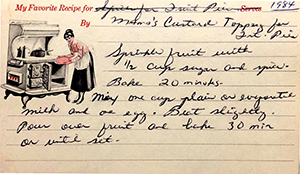 My Favorite Recipe for Spices for Fruit Pie Serves 1984
By Mom's Custard Topping for
Fruit Pies
Sprinkle fruit with
1/2 cup sugar and spice.
Bake 20 minutes.
Mix one cup plain or evaporate
milk and one egg. Beat slightly.
Pour over fruit and bake 30 min
or until set.